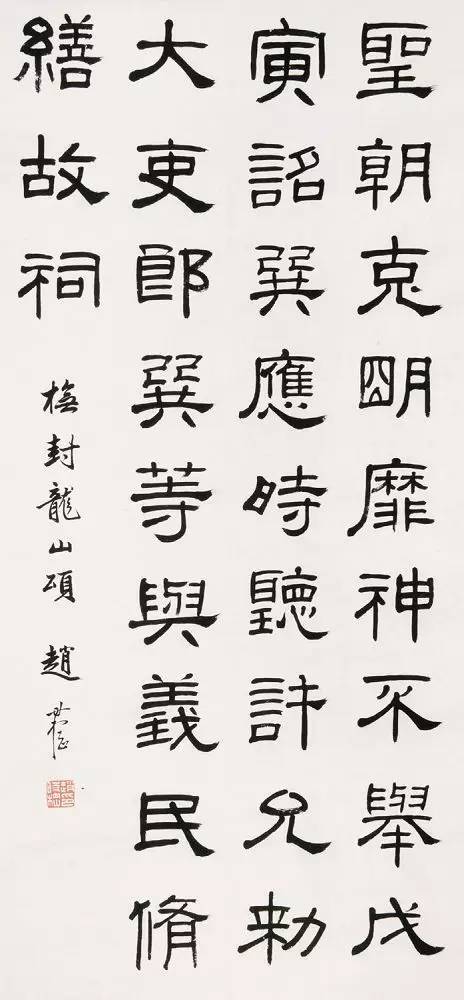 聖朝克朙靡神不舉戊
寅詔巽應時聽許允勑
大吏郎巽䓁與義民脩
繕故祠
橅封龍山頌 趙